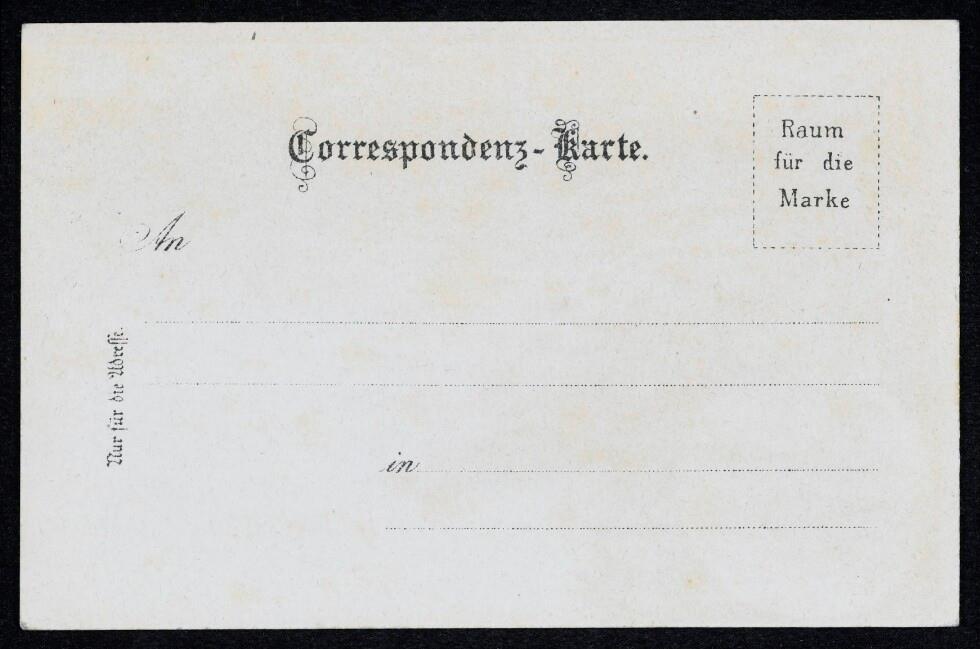 Correspondenz-Karte.
Raum
für die
Marke
An
Nur für die Adresse.
in